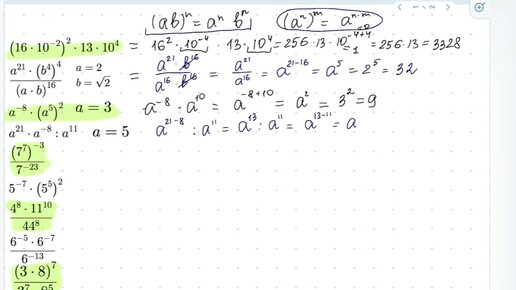 (ab)ⁿ = aⁿ bⁿ (aⁿ)ᵐ = aⁿ·ᵐ
(16 · 10⁻²)² · 13 · 10⁴ = 16² · 10⁻⁴ · 13 · 10⁴ = 256 · 13 · 10⁻⁴⁺⁴ = 256 · 13 = 3328
a²¹ · (b⁴)⁴ / (a · b)¹⁶ a = 2 b = √2 = a²¹ b¹⁶ / a¹⁶ b¹⁶ = a²¹ / a¹⁶ = a²¹⁻¹⁶ = a⁵ = 2⁵ = 32
a⁻⁸ · (a⁵)² a = 3 a⁻⁸ · a¹⁰ = a⁻⁸⁺¹⁰ = a² = 3² = 9
a²¹ · a⁻⁸ : a¹¹ a = 5 a²¹⁻⁸ : a¹¹ = a¹³ : a¹¹ = a¹³⁻¹¹ = a
(7⁷)⁻³ / 7⁻²³
5⁻⁷ · (5⁵)²
4⁸ · 11¹⁰ / 44⁸
6⁻⁵ · 6⁻⁷ / 6⁻¹³
(3 · 8)⁷